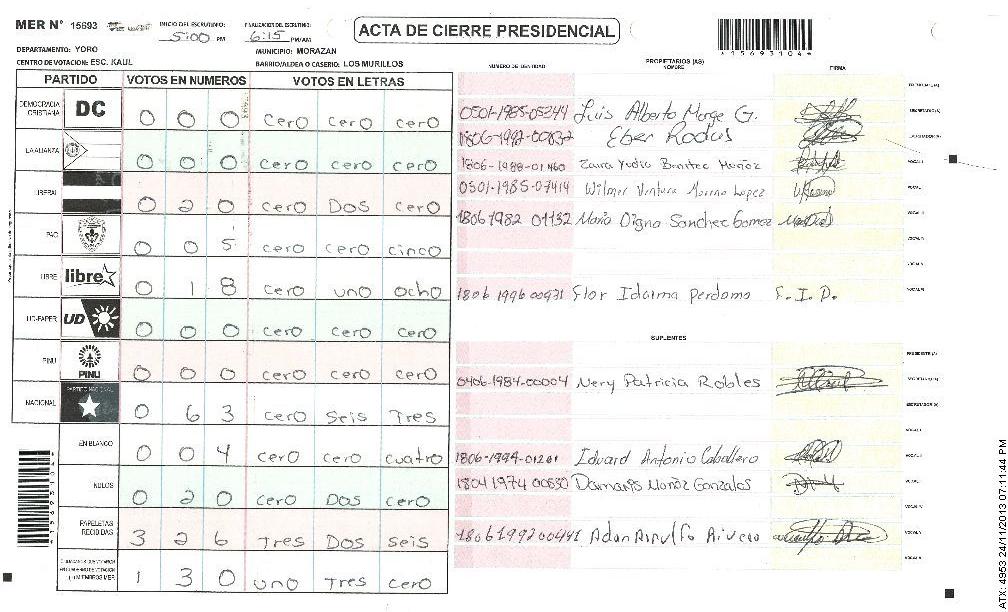 MER N° 15693
INICIO DEL ESCRUTINIO: 5:00 PM
FINALIZACION DEL ESCRUTINIO: 6:15 PM/AM
ACTA DE CIERRE PRESIDENCIAL
*15693104*
DEPARTAMENTO: YORO
MUNICIPIO: MORAZAN
CENTRO DE VOTACION: ESC. KAUL
BARRIO/ALDEA O CASERIO: LOS MURILLOS
PARTIDO VOTOS EN NUMEROS VOTOS EN LETRAS
DEMOCRACIA CRISTIANA DC 0 0 0 cero cero cero
LA ALIANZA 0 0 0 cero cero cero
LIBERAL 0 2 0 cero Dos cero
PAC 0 0 5 cero cero cinco
LIBRE libre 0 1 8 cero uno ocho
UD-FAPER UD 0 0 0 cero cero cero
PINU PINU 0 0 0 cero cero cero
NACIONAL PARTIDO NACIONAL 0 6 3 cero Seis Tres
EN BLANCO 0 0 4 cero cero cuatro
NULOS 0 2 0 cero Dos cero
PAPELETAS RECIBIDAS 3 2 6 Tres Dos seis
CIUDADANOS QUE VOTARON EN CUADERNO DE VOTACION (+) MIEMBROS MER 1 3 0 uno Tres cero
PROPIETARIOS (AS)
NUMERO DE IDENTIDAD NOMBRE FIRMA
0501-1985-05244 Luis Alberto Monge G.
1806-1992-00832 Eber Rodas
1806-1988-01460
0501-1985-07414 Wilmer Ventura Moreno Lopez
1806 1982 01132 Maria Digna Sanchez Gomez
1806 1996 00931 Flor Idalma Perdomo F. I. P.
SUPLENTES
0406-1984-00004 Nery Patricia Robles
1806-1994-01201 Eduard Antonio Caballero
1804 1974 00830 Damaris Muñoz Gonzales
1806 1992 00441
ATX: 4953 24/11/2013 07:11:44 PM